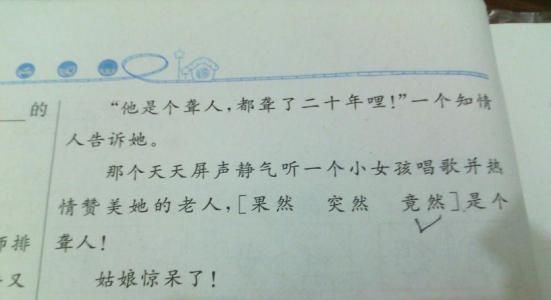 的
师排
又
“他是个聋人，都聋了二十年哩！”一个知情
人告诉她。
那个天天屏声静气听一个小女孩唱歌并热
情赞美她的老人，[果然 突然 竟然]是个
聋人！
姑娘惊呆了！